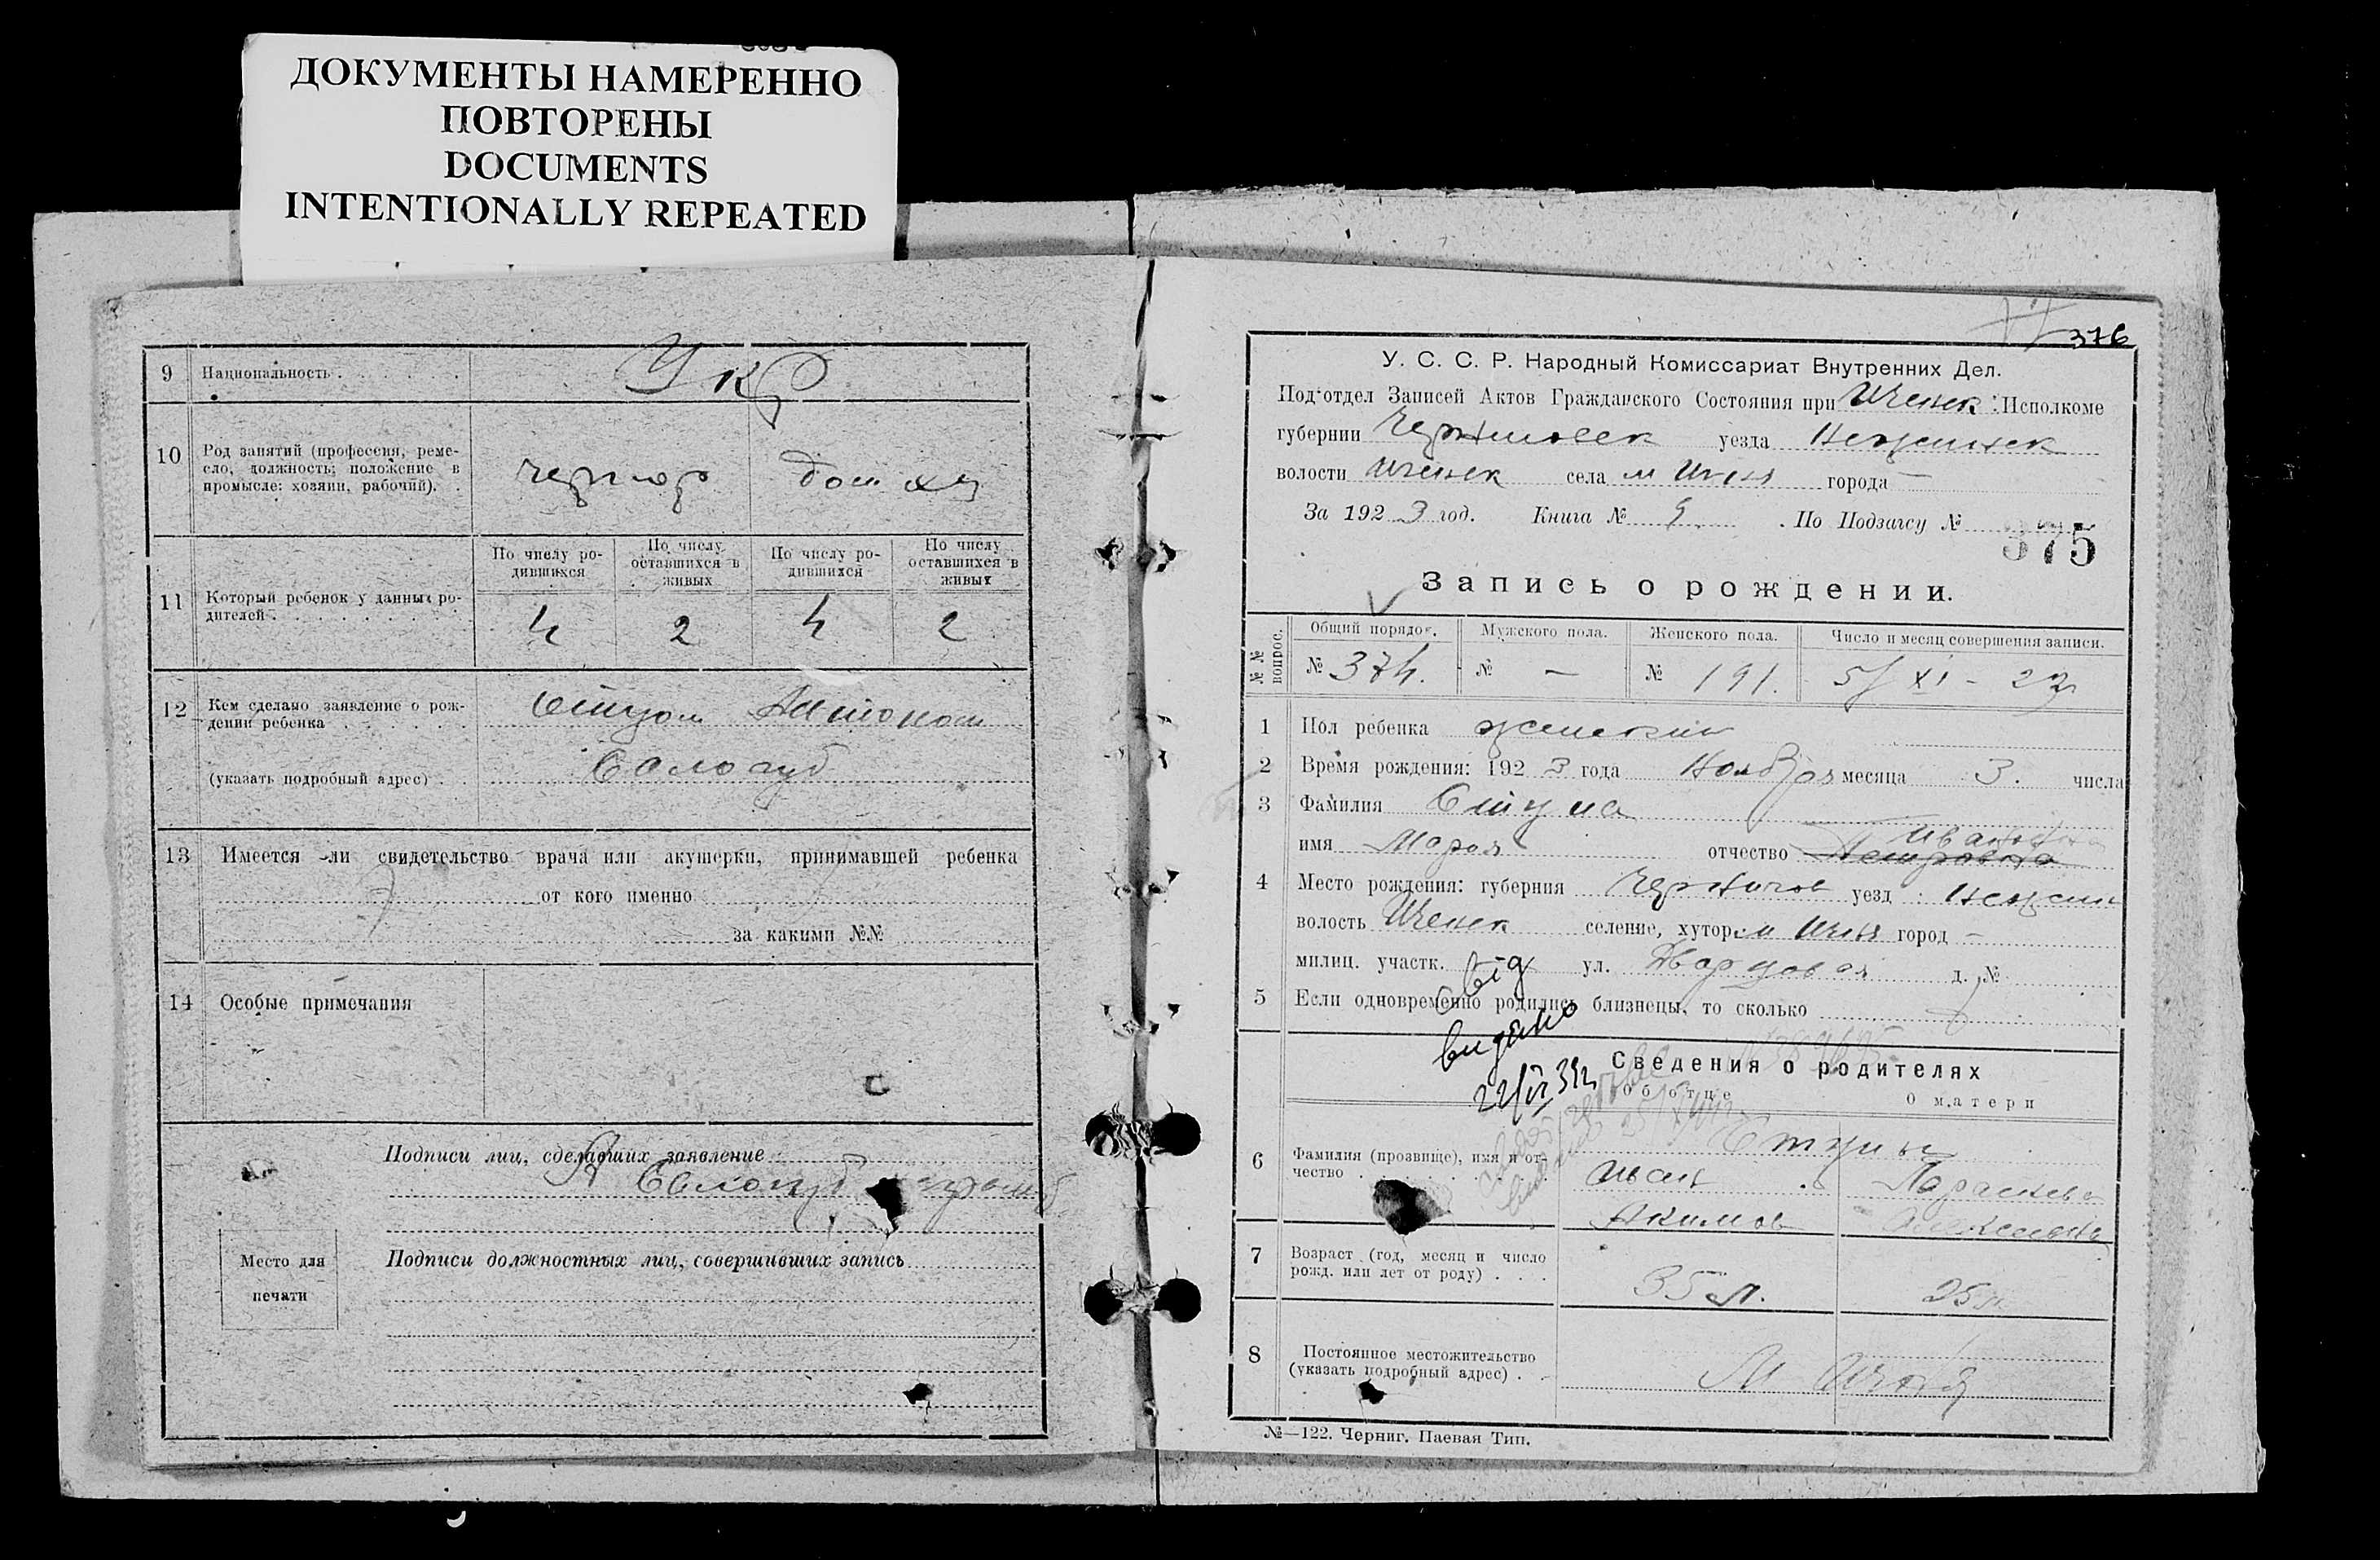 ДОКУМЕНТЫ НАМЕРЕННО
ПОВТОРЕНЫ
DOCUMENTS
INTENTIONALLY REPEATED
9 Национальность Укр
10 Род занятий (профессия, реме-
сло, должность; положение в
промысле: хозяин, рабочий).
чернор дом хоз
По числу ро-
дившихся
По числу
оставшихся в
живых
По числу ро-
дившихся
По числу
оставшихся в
живых
11 Который ребенок у данных ро-
дителей
4 2 4 2
12 Кем сделано заявление о рож-
дении ребенка
Отцом Антоном
(указать подробный адрес)
Сологуб
13 Имеется ли свидетельство врача или акушерки, принимавшей ребенка
от кого именно
за какими №№
14 Особые примечания
Подписи лиц, сделавших заявление
А Сологуб
Место для
печати
Подписи должностных лиц, совершивших запись
376
У. С. С. Р. Народный Комиссариат Внутренних Дел.
Под'отдел Записей Актов Гражданского Состояния при Иченск Исполкоме
губернии Черниговск уезда Нежинск
волости Иченск села м Ичня города —
За 1923 год. Книга № По Подзагсу №
375
Запись о рождении.
№№ вопрос.
Общий порядок. Мужского пола. Женского пола. Число и месяц совершения записи.
№ 374. № — № 191. 5/XI - 23
1 Пол ребенка женский
2 Время рождения: 1923 года Ноября месяца 3. числа
3 Фамилия Ступа
Ивановна
имя Мария отчество Петровна
4 Место рождения: губерния Чернигов уезд Нежин
волость Иченск селение, хутор м Ичня город —
милиц. участк. ул. Дворцовая д. №
5 Если одновременно родились близнецы, то сколько
Свід
видано
22/VI 39г
Сведения о родителях
Об отце О матери
6 Фамилия (прозвище), имя и от-
чество
Ступы
Иван Параскева
Акимов
7 Возраст (год, месяц и число
рожд. или лет от роду)
35 л. 25 л.
8 Постоянное местожительство
(указать подробный адрес)
М Ичня
№—122. Черниг. Паевая Тип.